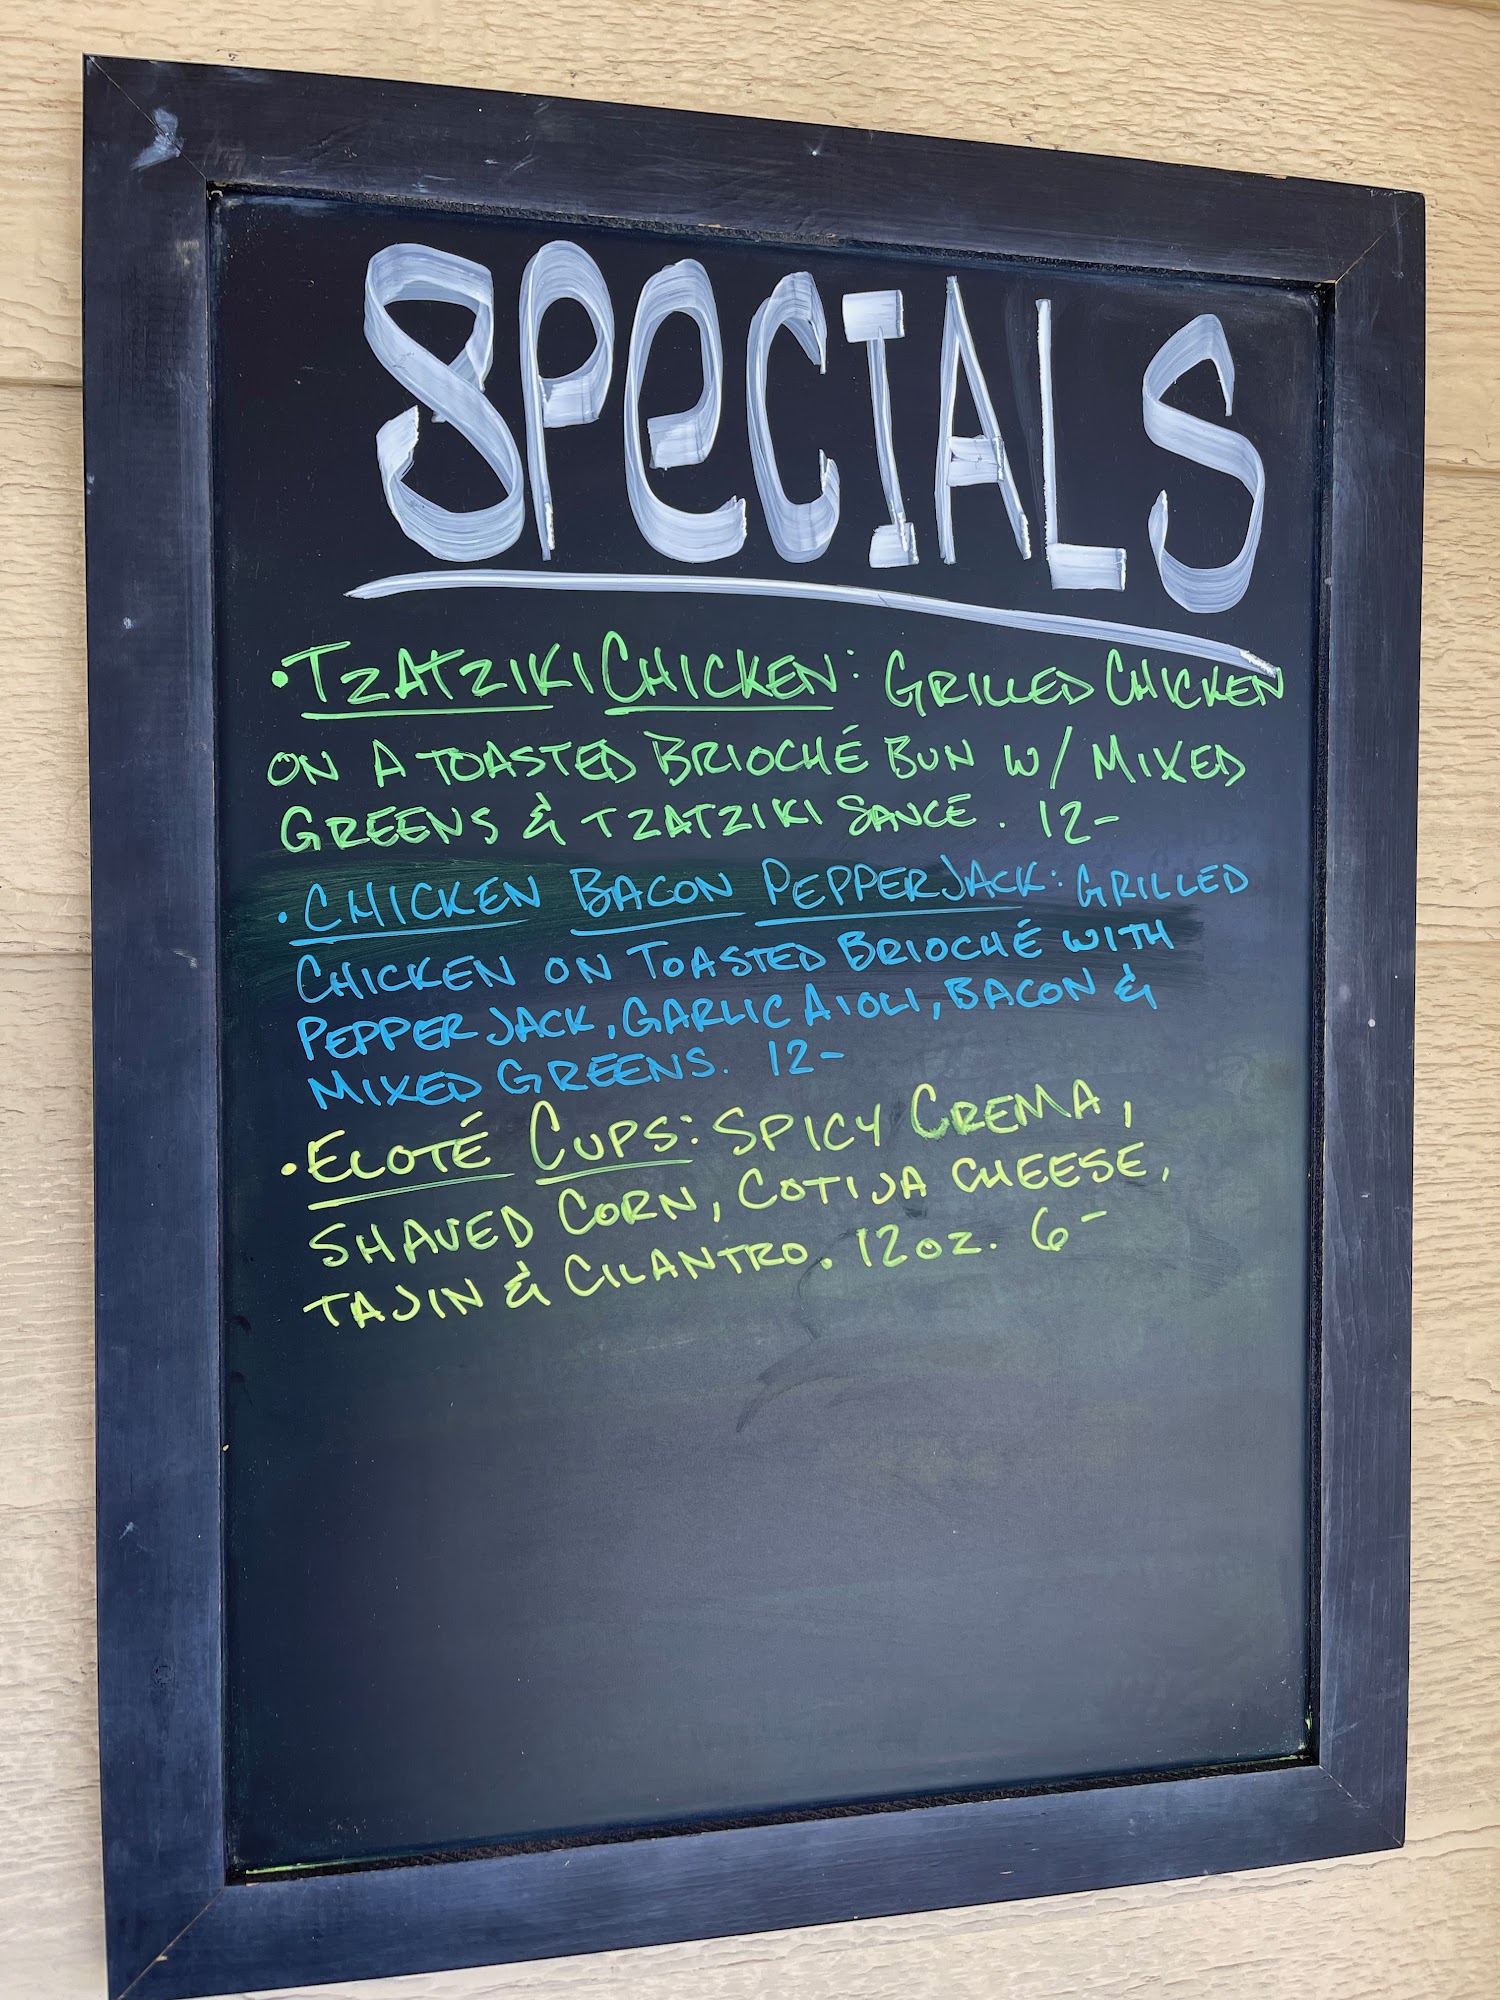 SPECIALS
• TZATZIKI CHICKEN: GRILLED CHICKEN
ON A TOASTED BRIOCHÉ BUN W/ MIXED
GREENS & TZATZIKI SAUCE. 12-
• CHICKEN BACON PEPPERJACK: GRILLED
CHICKEN ON TOASTED BRIOCHÉ WITH
PEPPER JACK, GARLIC AIOLI, BACON &
MIXED GREENS. 12-
• ELOTÉ CUPS: SPICY CREMA,
SHAVED CORN, COTIJA CHEESE,
TAJIN & CILANTRO. 12oz. 6-